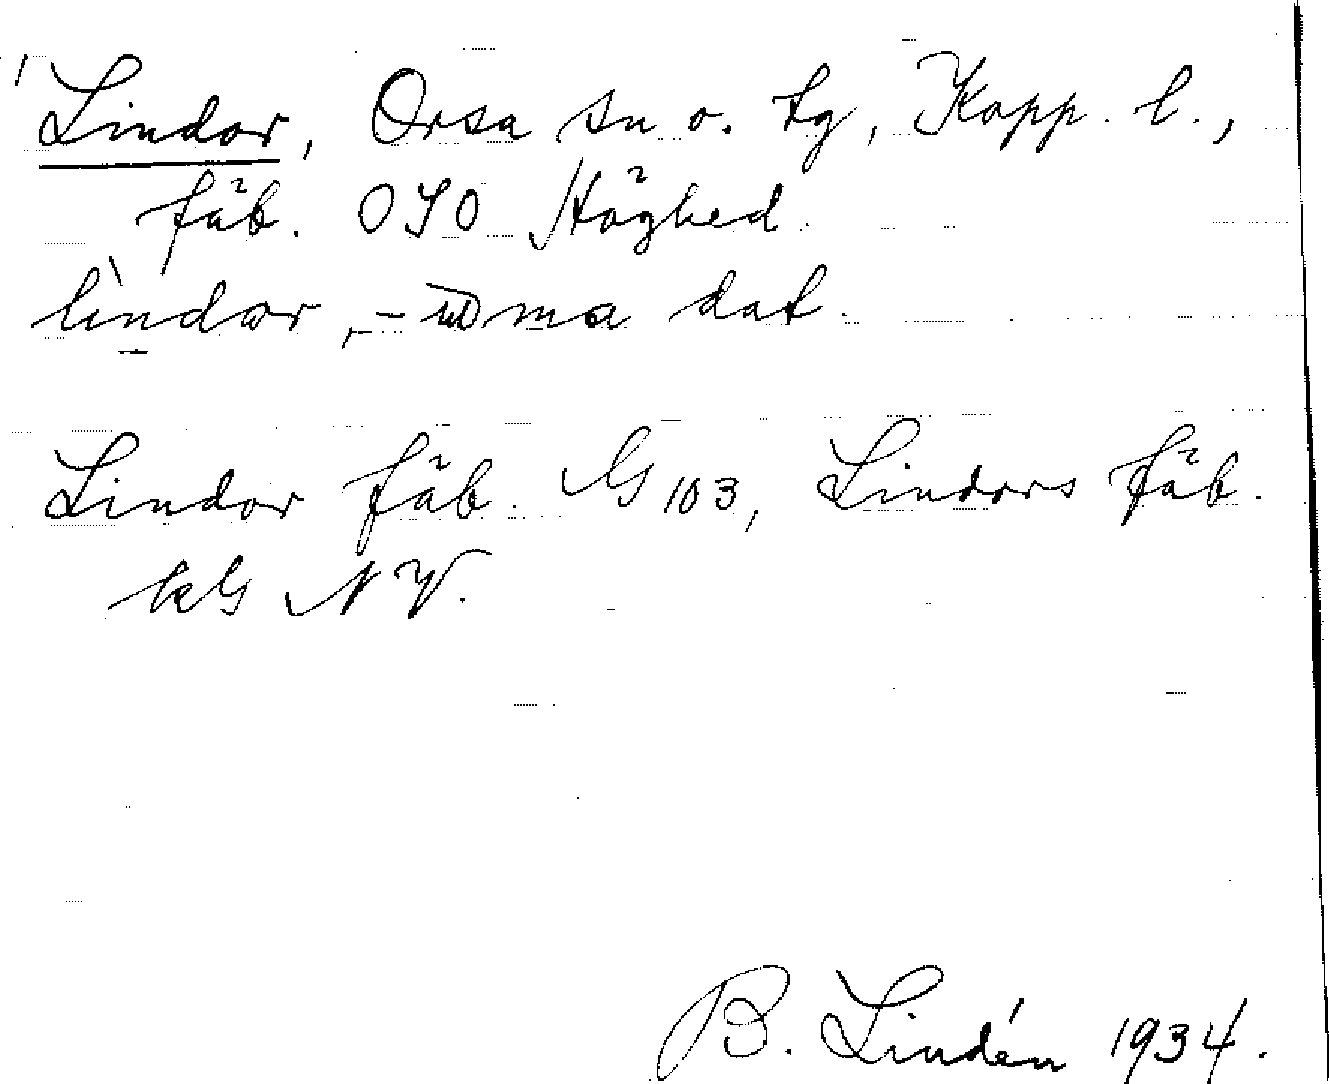 Lindor, Orsa sn o. tg, Kopp. l.,
fäb. OSO Höghed.
lindor, - ma dat.
Lindor fäb. G 103, Lindors fäb.
kG NV.
B. Lindén 1934.